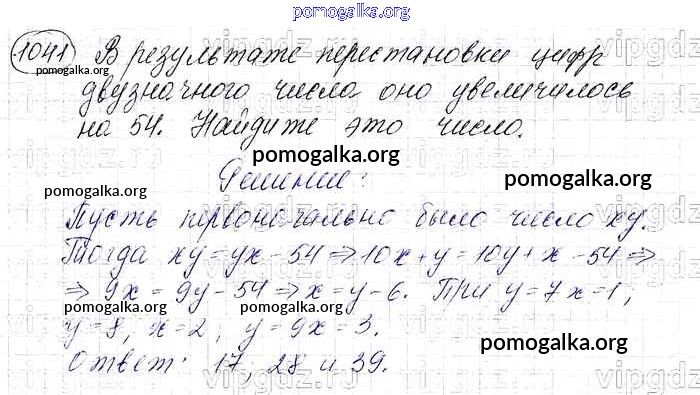 pomogalka.org
1041 В результате перестановки цифр
двузначного числа оно увеличилось
на 54. Найдите это число.
Решение:
Пусть первоначально было число xy.
Тогда xy = yx - 54 ⇒ 10x + y = 10y + x - 54 ⇒
⇒ 9x = 9y - 54 ⇒ x = y - 6. При y = 7 x = 1;
y = 8, x = 2; y = 9 x = 3.
Ответ: 17; 28 и 39.
pomogalka.org
pomogalka.org
pomogalka.org
pomogalka.org
pomogalka.org
pomogalka.org
pomogalka.org